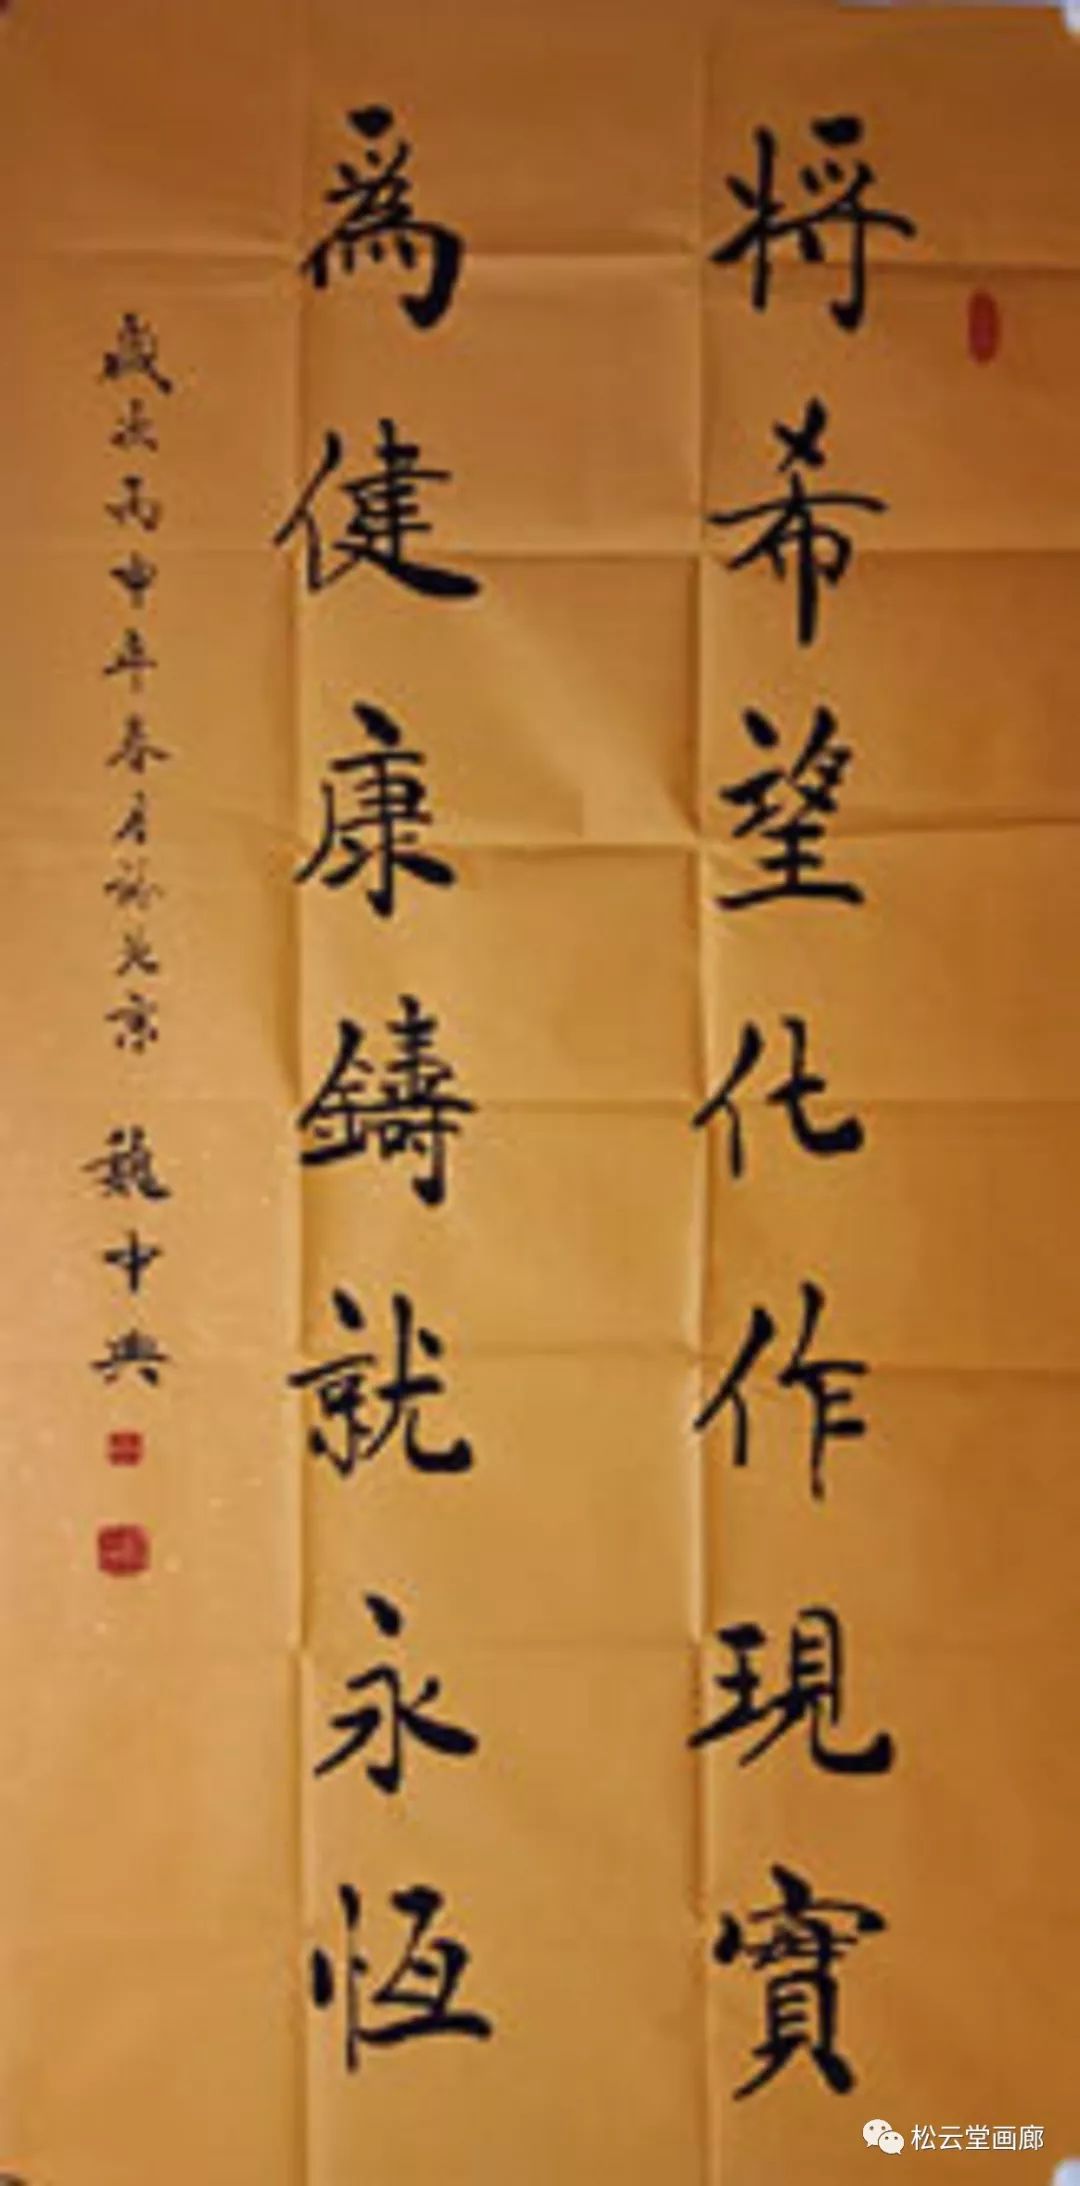 將希望化作現實
為健康鑄就永恆
歲次丙申年春月於北京 魏中典
松云堂画廊